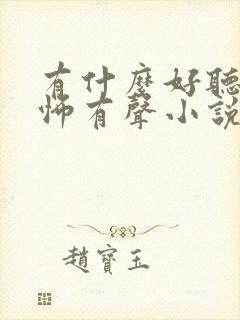 有什麼好聽
怖有聲小說
趙寶玉